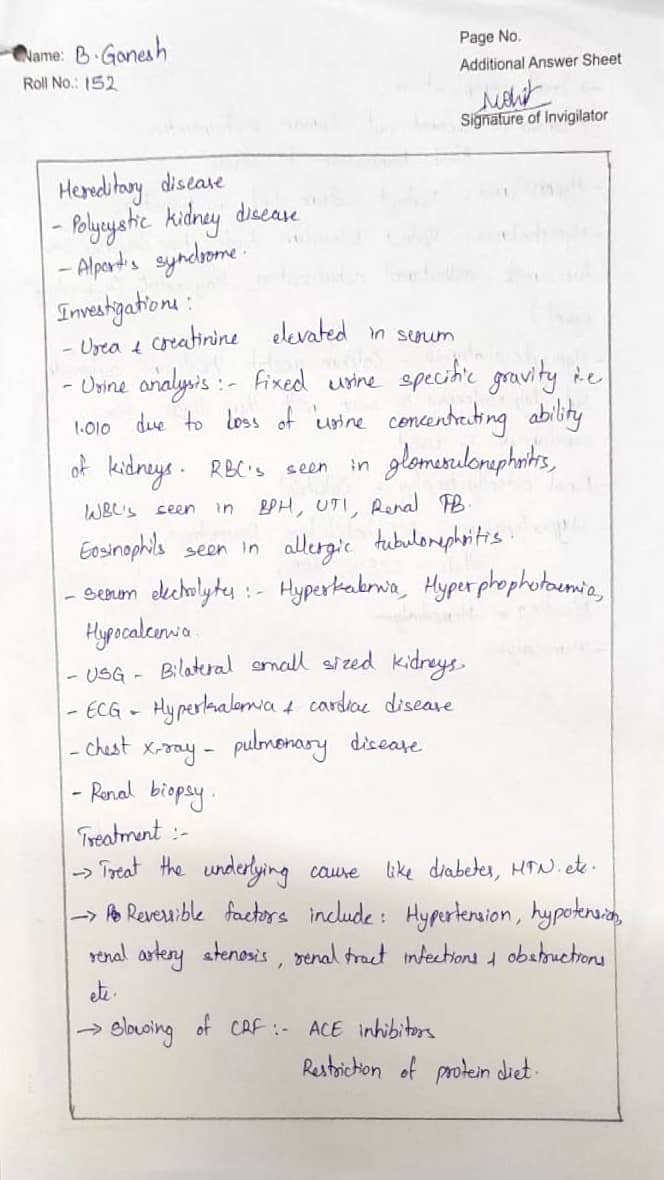 Name: B. Ganesh
Roll No.: 152
Page No.
Additional Answer Sheet
Mohit
Signature of Invigilator
Hereditary disease
- Polycystic kidney disease
- Alport's syndrome.
Investigations :
- Urea & creatinine elevated in serum
- Urine analysis :- Fixed urine specific gravity i.e
1.010 due to loss of urine concentrating ability
of kidneys. RBC's seen in glomerulonephritis,
WBC's seen in BPH, UTI, Renal TB.
Eosinophils seen in allergic tubulonephritis.
- Serum electrolytes :- Hyperkalemia, Hyperphophotaemia,
Hypocalcemia.
- USG - Bilateral small sized kidneys.
- ECG - Hyperkalemia & cardiac disease
- Chest X-ray - pulmonary disease
- Renal biopsy.
Treatment :-
→ Treat the underlying cause like diabetes, HTN. etc.
→ Reversible factors include : Hypertension, hypotension,
renal artery stenosis, renal tract infections & obstructions
etc.
→ Slowing of CRF :- ACE inhibitors
Restriction of protein diet.